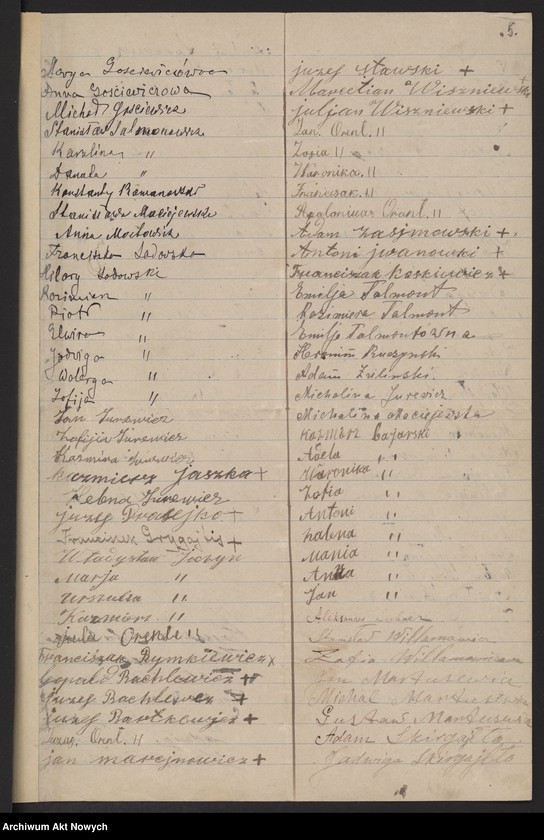 5.
Marya Gościewiczówna
Anna Gościewiczowa
Michał Gościewicz
Stanisław Salmonowicz
Karolina "
Daniela "
Konstanty Romanowski
Stanisława Maciejewska
Anna
Franciszka Sadowska
Hilary Sadowski
Kazimierz "
Piotr "
Elwira "
Jadwiga "
Walerya "
Zofija "
Jan Jurewicz
Zofija Jurewicz
Kazmira Jurewicz
kazmierz jaszka +
Helena Jurewicz
juzef +
Franciszek +
Władysław
Marja "
Urszula "
Kazmierz "
jula Orent "
Franciszak Rymkiewicz x
Leopold Bachlowicz +
juzef Bachlowicz +
juzef Bartkewicz +
Juzas. Orent. "
jan marcjnowicz +
juzef Sławski +
Marcetian Wiszniewski
juljan Wiszniewski +
Jan. Orent. "
Zosia "
Waronika. "
Franciszak. "
Orent. "
Adam Kasimowski +
Antoni jwanowski +
Franciszak koskiewicz +
Emilja Talmont
Kazimiera Talmont
Emilja Talmontówna
Ruczynski
Adam Zilinski
Michalina Jurewicz
Michalina Maciejewska
Kazmierz Gajarski
Adela " "
Waronika " "
Zofia " "
Antoni " "
halena " "
Mania " "
Anna " "
Jan " "
Aleksander
Stanisław
Zofia
Jan
Michał
Gustaw
Adam Skirgajłło
Jadwiga Skirgajłło
Archiwum Akt Nowych